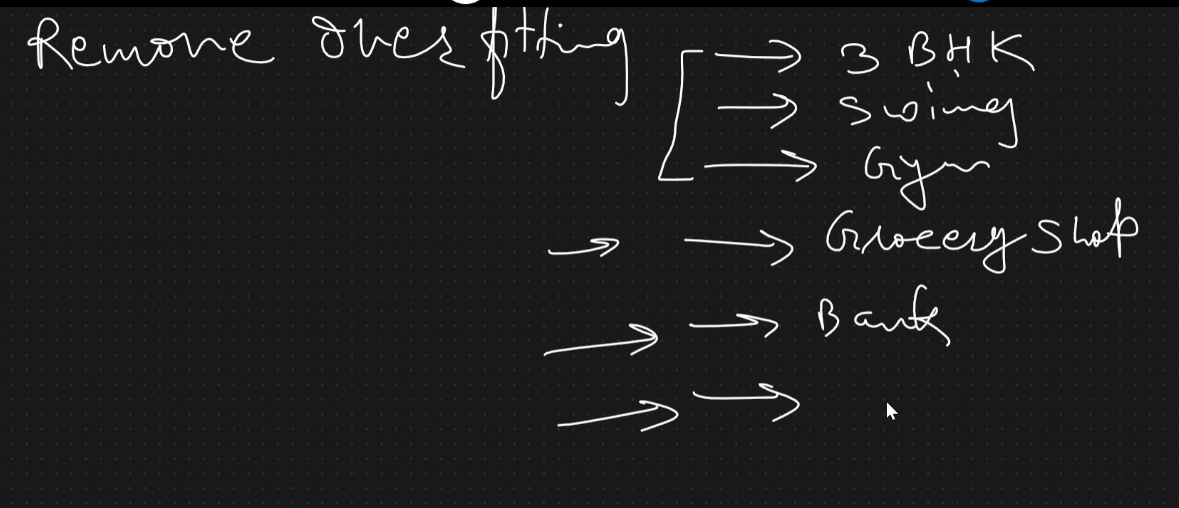 Remove Overfitting
3 BHK
Swimg
Gym
Grocery Shop
Bank